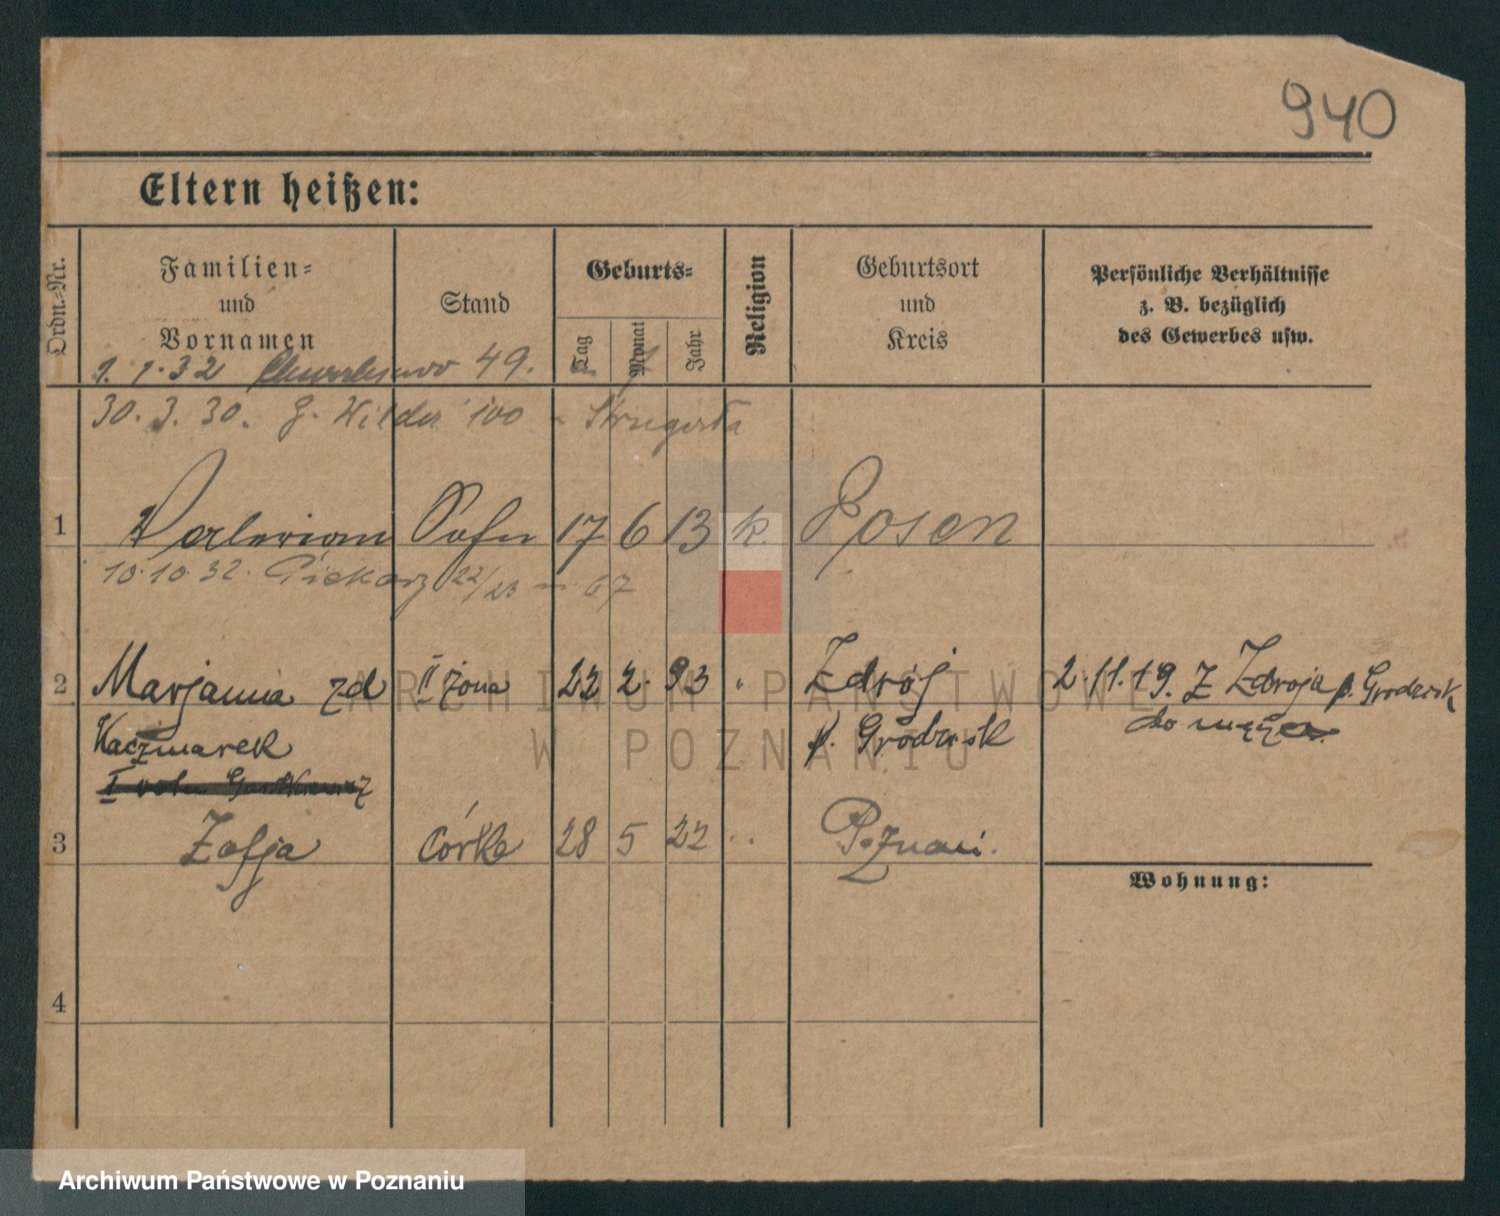 940
Eltern heißen:
Ordn.-Nr.
Familien-
und
Vornamen
Stand
Geburts-
Tag
Monat
Jahr
Religion
Geburtsort
und
Kreis
Persönliche Verhältnisse
z. B. bezüglich
des Gewerbes usw.
1. 1. 32 49.
30. 3. 30. G. Wilda 100
1 Valerian Sohn 17 6 13 k. Posen
10. 10. 32. Piekary 22/23 m. 67
2 Marjanna zd II żona 22 2. 93 Zdrój 2. 11. 19. Z Zdroja p. Grodzisk
Kaczmarek p. Grodzisk do męża
I voto
3 Zofja córka 28 5 22 Poznań.
Wohnung:
4
ARCHIWUM PAŃSTWOWE
W POZNANIU
Archiwum Państwowe w Poznaniu